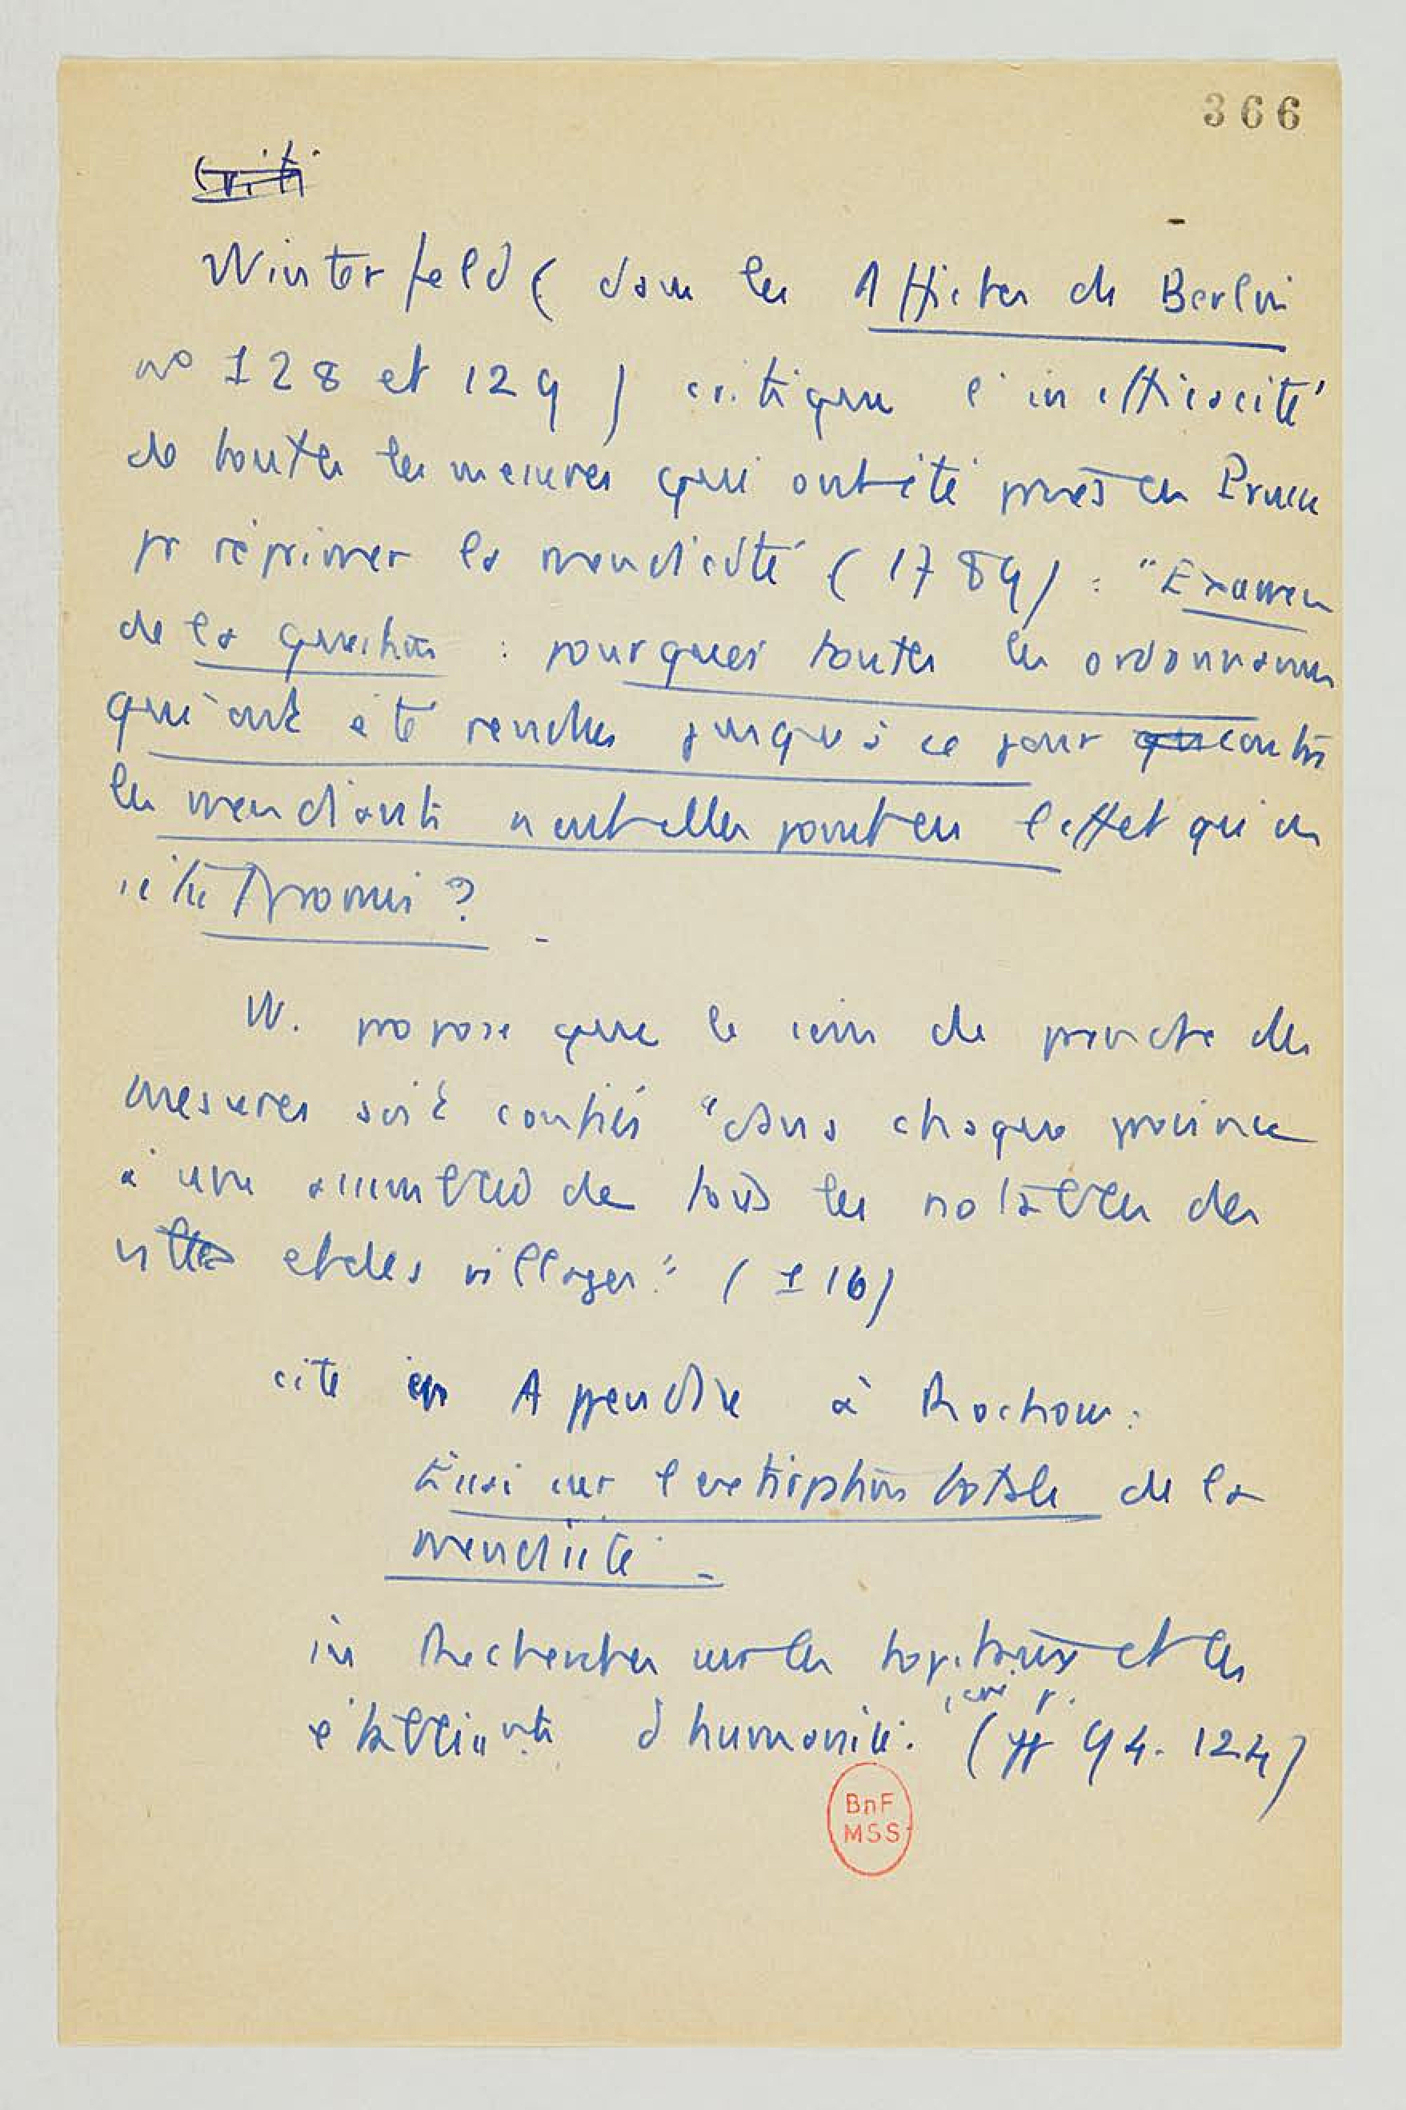 366
Criti
Winterfeld (dans les Affiches de Berlin
n° 128 et 129) critique l'inefficacité
de toutes les mesures qui ont été prises en Prusse
pr réprimer la mendicité (1789) : "Examen
de la question : pourquoi toutes les ordonnances
qui ont été rendues jusqu'à ce jour qu contre
les mendiants n'ont-elles point eu l'effet qu'on
s'était promis ?
W. propose que le soin de prendre des
mesures soit confiés "dans chaque province
à une assemblée de tous les notables des
villes et des villages" (116)
cité in Appendice à Rochow :
Essai sur l'extirpation totale de la
mendicité -
in Recherches sur les hopitaux et les
établissnts d'humanité. (pp 94-124)
BnF
MSS